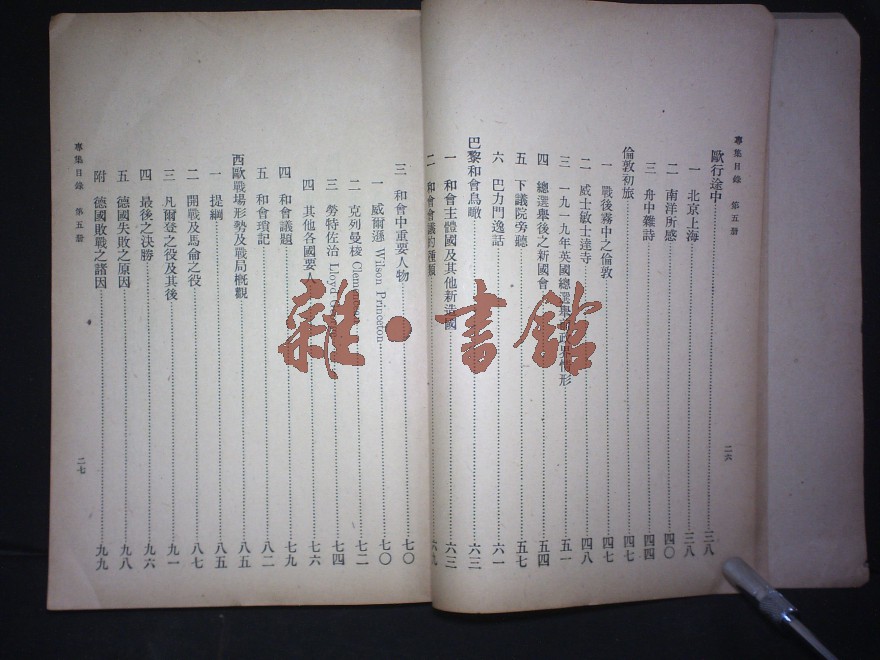 專集目錄 第五册
歐行途中 三八
一 北京上海 三八
二 南洋所感 四〇
三 舟中雜詩 四四
倫敦初旅 四七
一 戰後霧中之倫敦 四七
二 威士敏士達寺 四八
三 一九一九年英國總選舉 政 情形 五一
四 總選舉後之新國會 五四
五 下議院旁聽 五七
六 巴力門逸話 六一
巴黎和會鳥瞰 六三
一 和會主體國及其他新造國 六三
二 和會會議的種類 六九
二六
三 和會中重要人物 七〇
一 威爾遜 Wilson Princeton 七〇
二 克列曼梭 七二
三 勞特佐治 Lloyd 七四
四 其他各國要人 七六
四 和會議題 七九
五 和會瑣記 八二
西歐戰場形勢及戰局概觀 八五
一 提綱 八五
二 開戰及馬侖之役 八七
三 凡爾登之役及其後 九一
四 最後之決勝 九六
五 德國失敗之原因 九八
附 德國敗戰之諸因 九九
專集目錄 第五册
二七
雜·書館